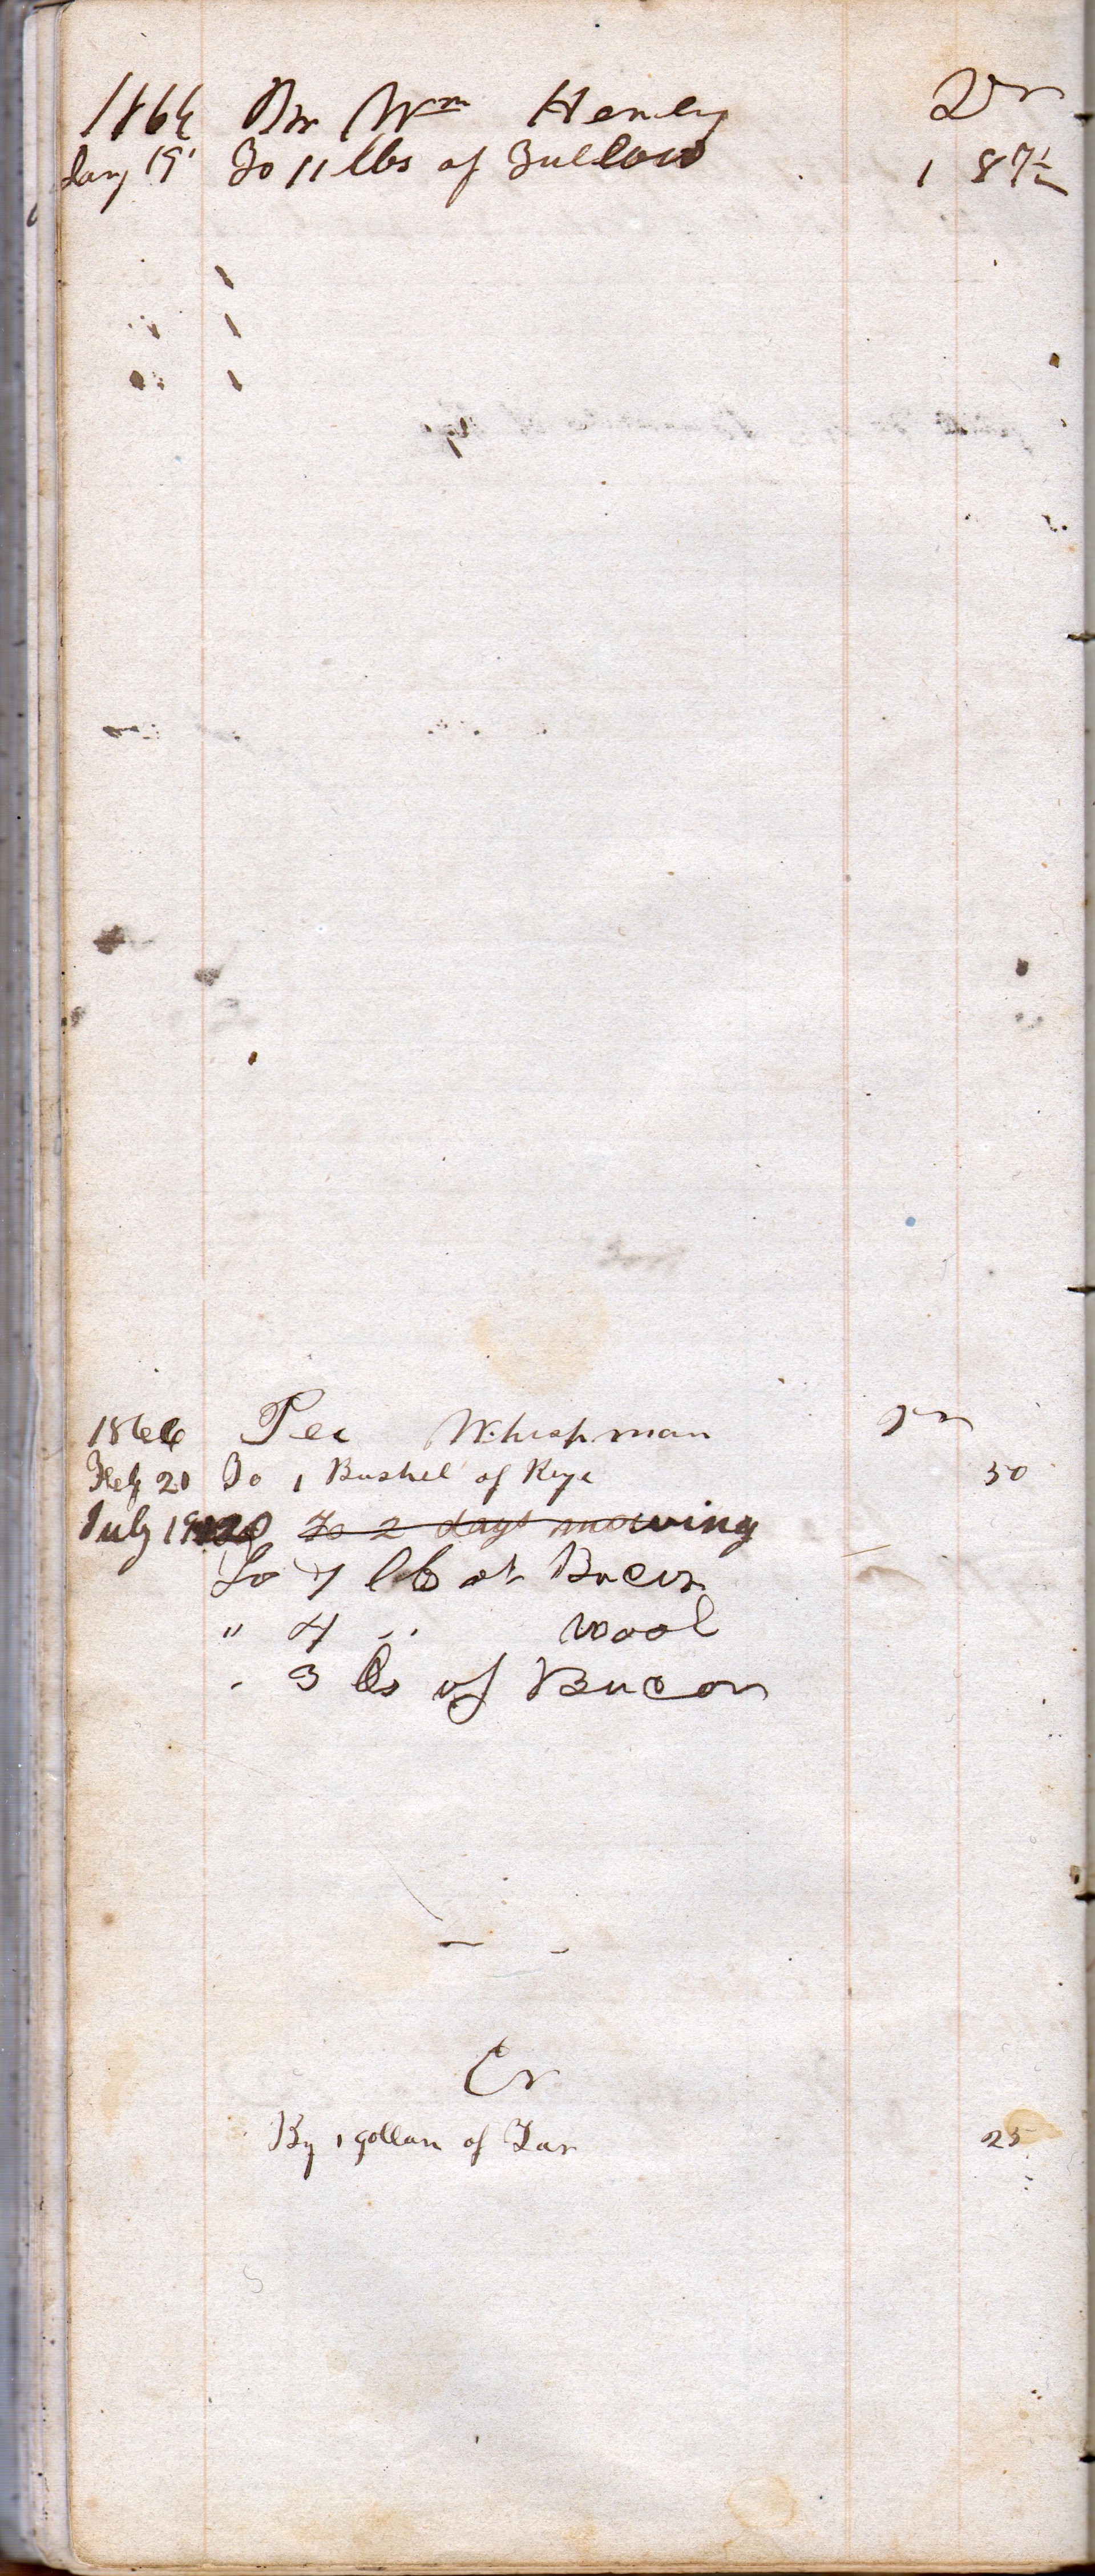 1866 Wm Henley Dr
Jany 19 To 11 lbs of Tullow 1 87½
1866 Dr
Feb 20 To 1 Bushel of Rye 50
July 19 20 To 2 days mowing
To 7 lb of Bacon
" 4 " wool
" 3 lbs of Bacon
Cr
By 1 gollan of Tar 25